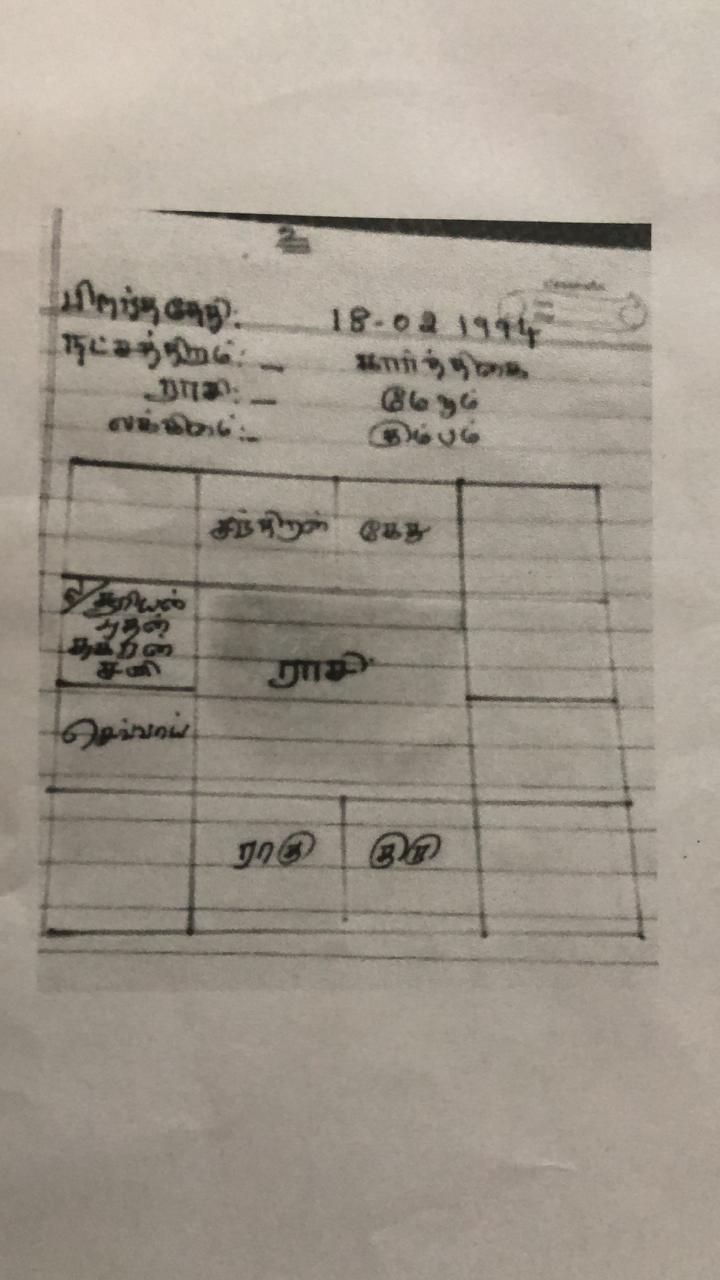 2
பிறந்ததேதி: 18-02 1994
நட்சத்திரம்:- கார்த்திகை
ராசி:- மேஷம்
லக்கினம்:- கும்பம்
சந்திரன் கேது
ல/சூரியன்
புதன்
சுக்ரன்
சனி
ராசி
செவ்வாய்
ராகு குரு